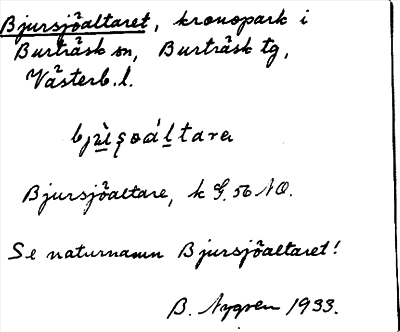 Bjursjöaltaret, kronopark i
Burträsk sn, Burträsk tg,
Västerb. l.
Bjursjöaltare, k G. 56 NO.
Se naturnamn Bjursjöaltaret!
B. Nygren 1933.